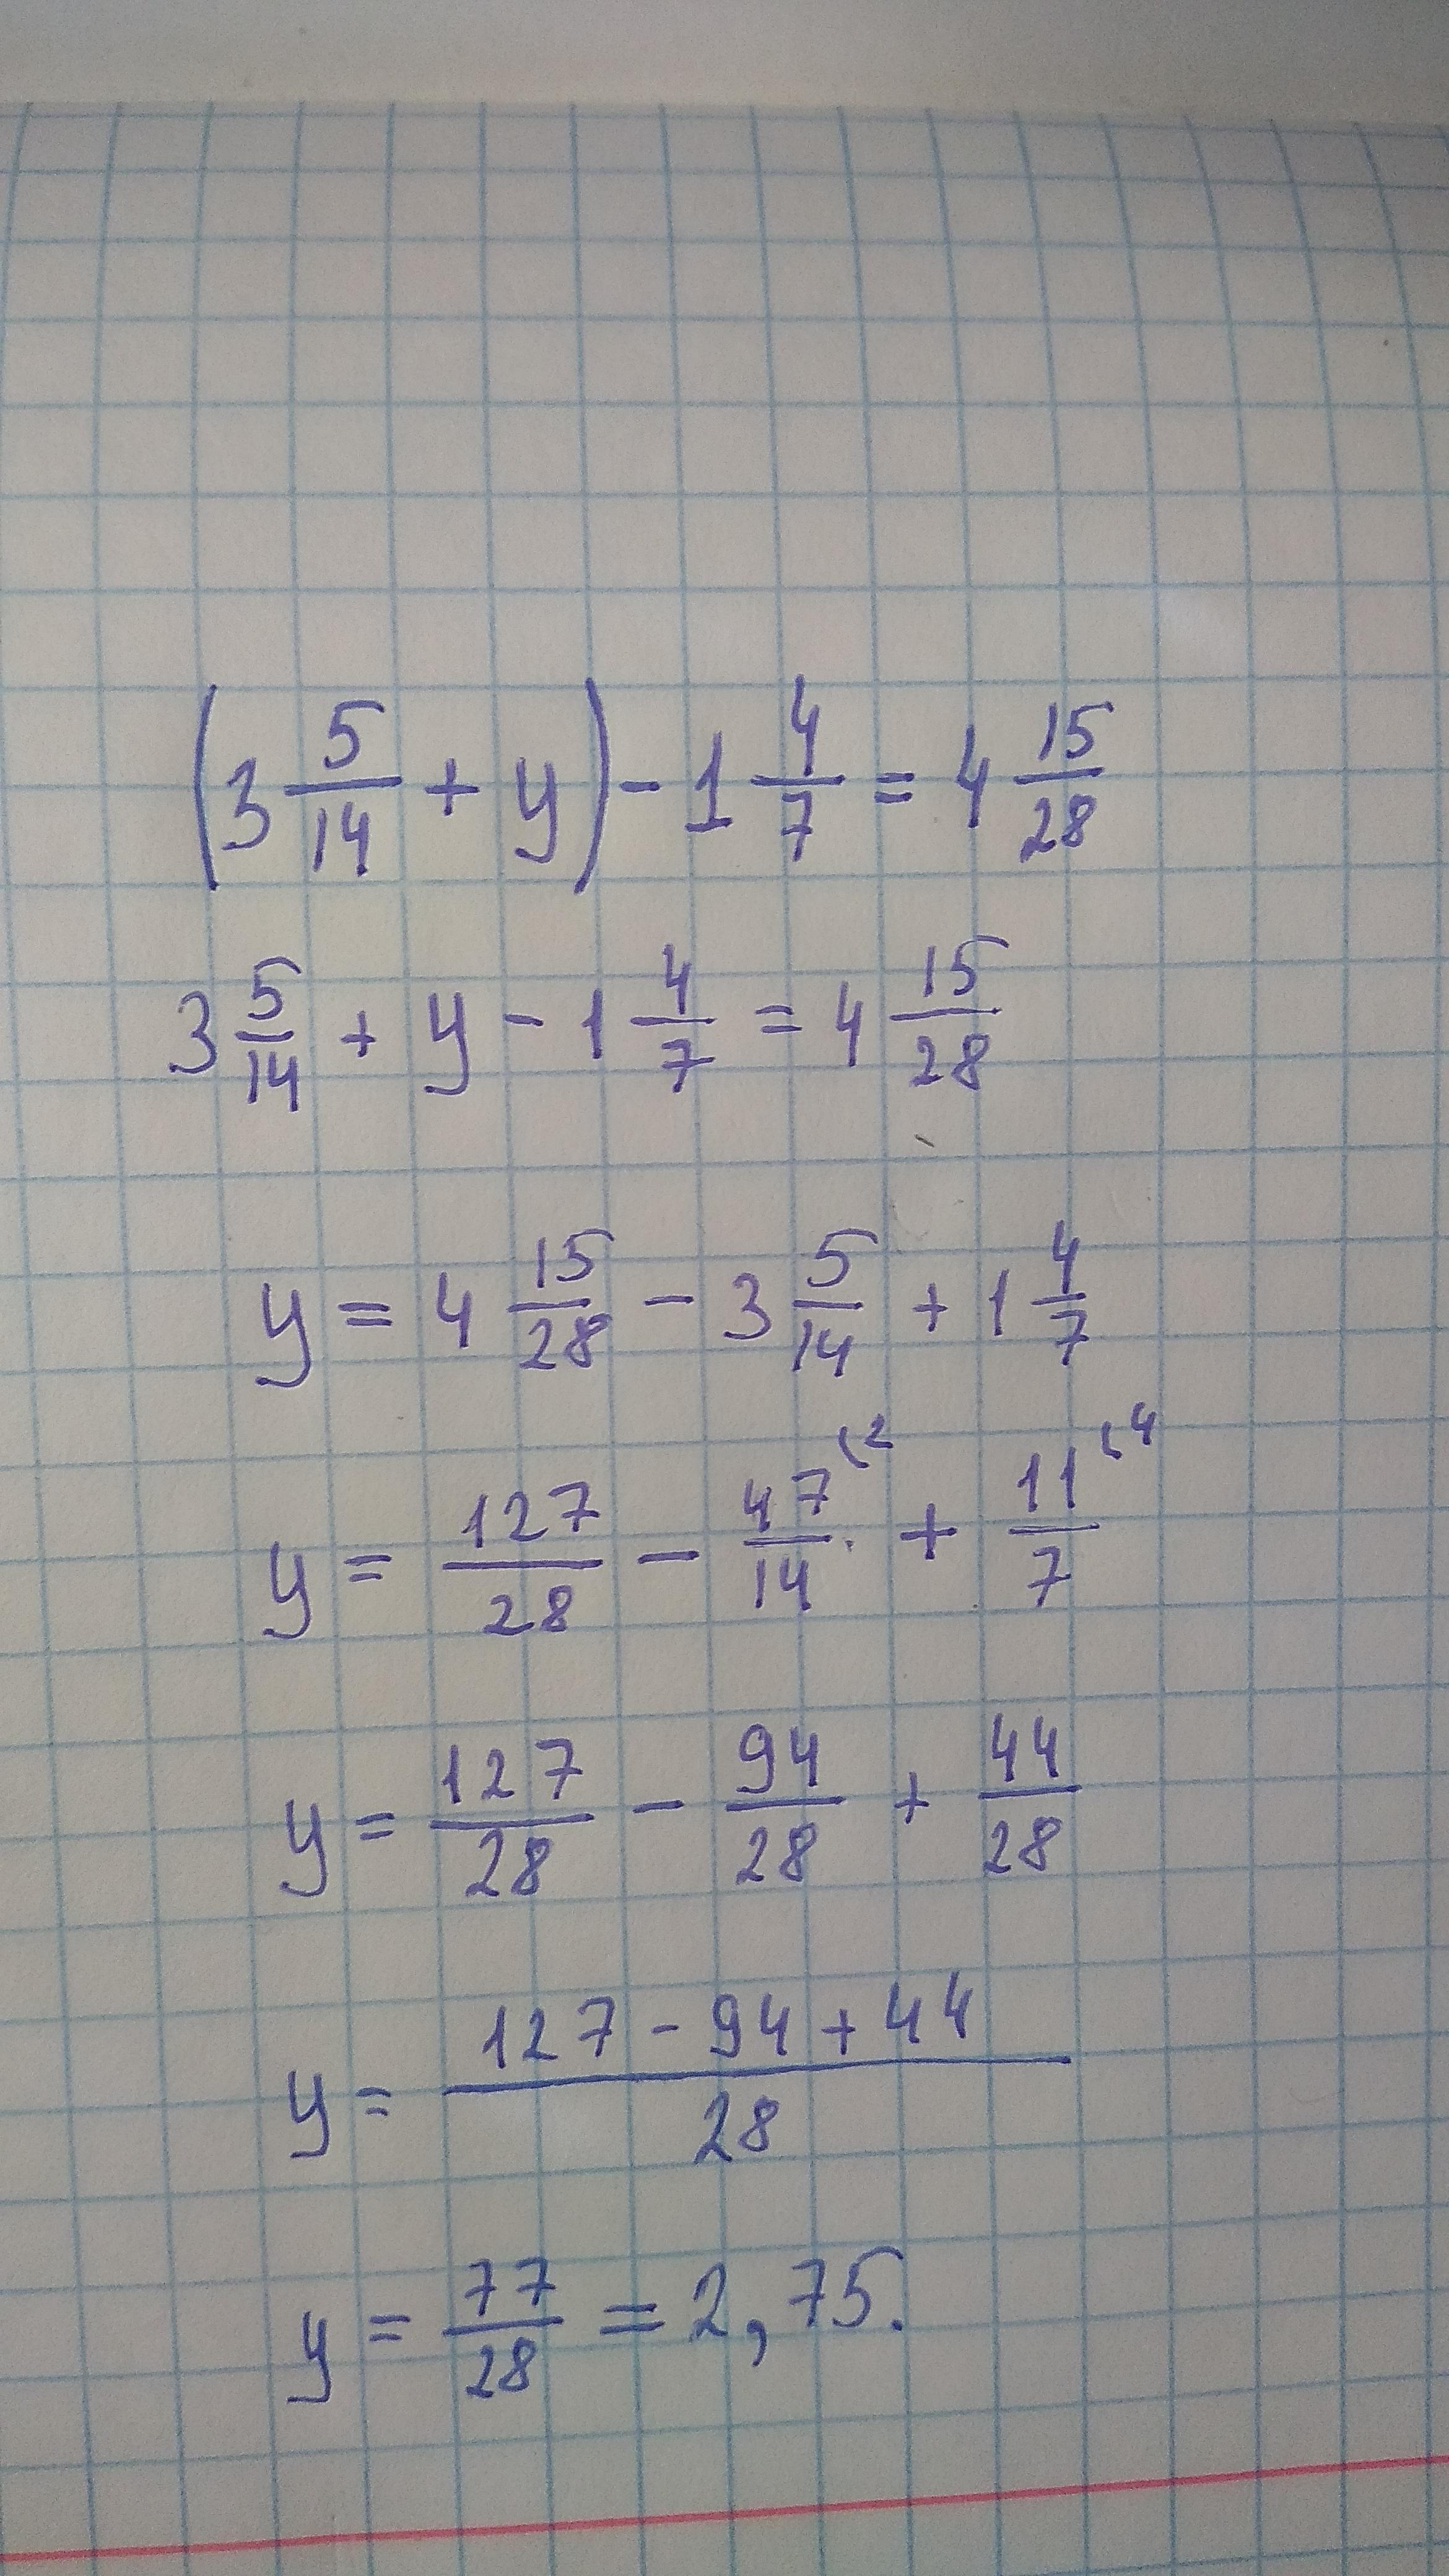 (3 5/14 + y) - 1 4/7 = 4 15/28
3 5/14 + y - 1 4/7 = 4 15/28
y = 4 15/28 - 3 5/14 + 1 4/7
y = 127/28 - 47/14 (2 + 11/7 (4
y = 127/28 - 94/28 + 44/28
y = (127 - 94 + 44)/28
y = 77/28 = 2,75.